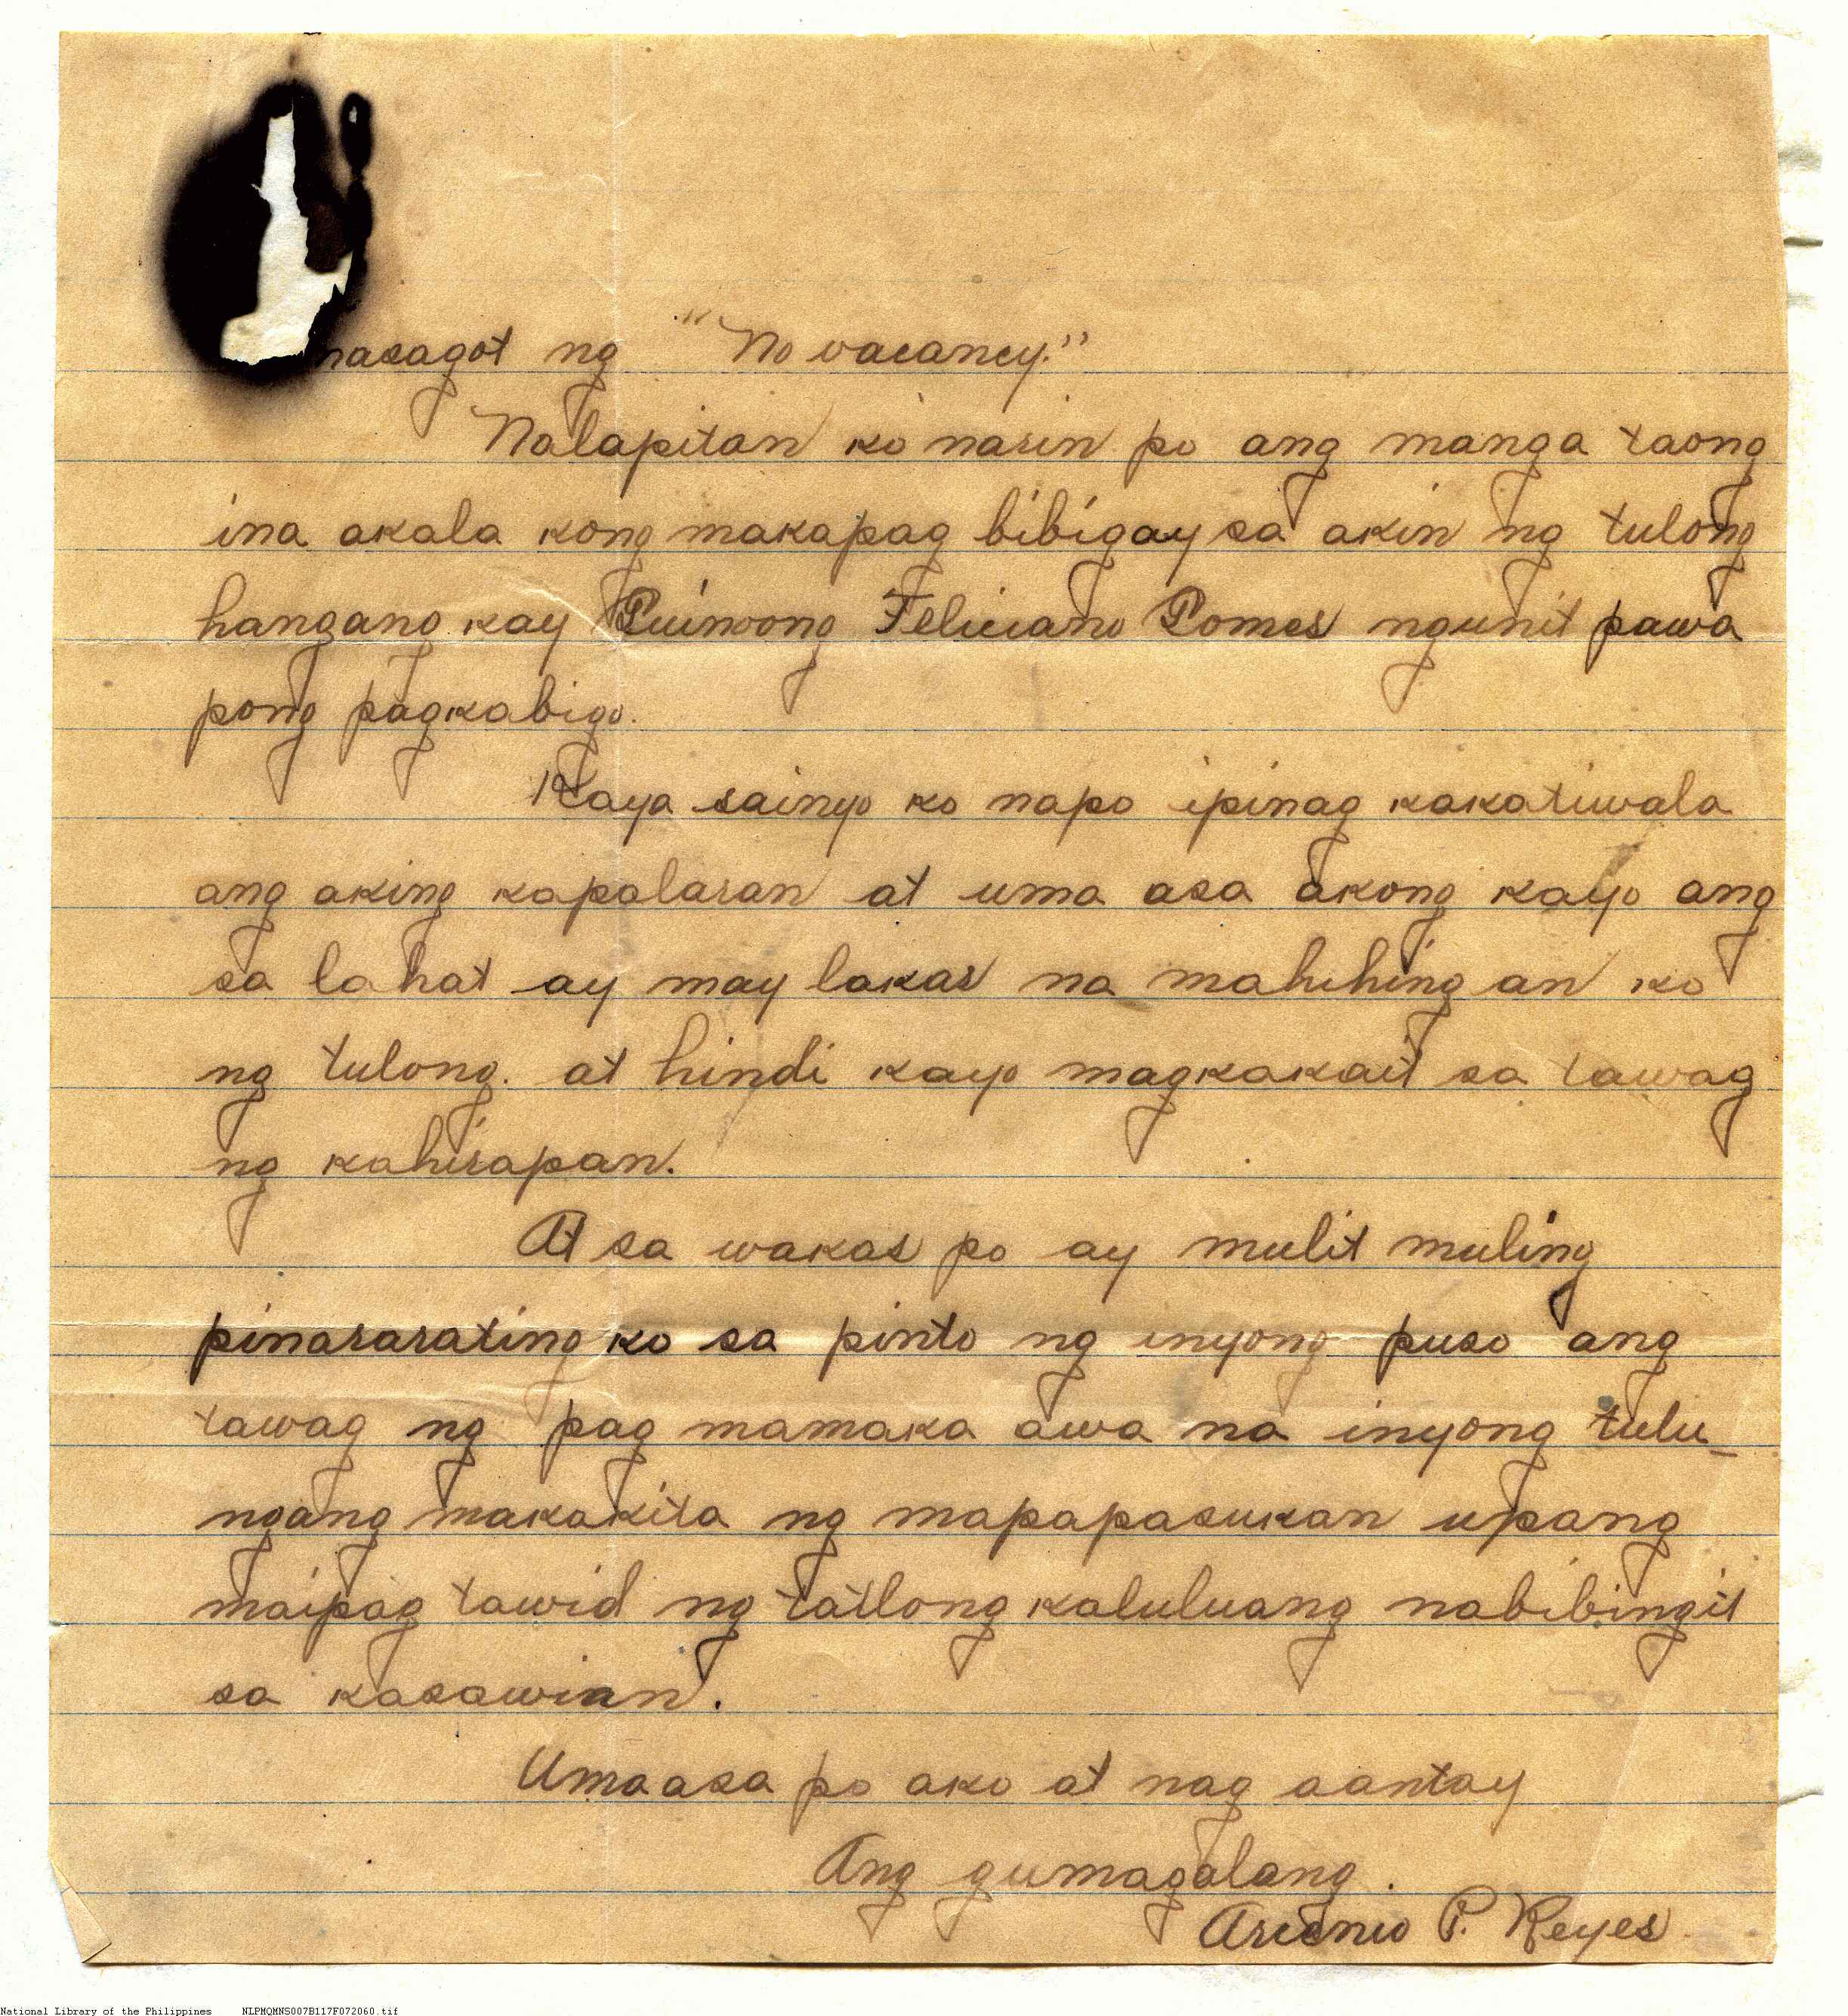 nasagot ng "No vacancy."
Nalapitan ko narin po ang manga taong
ina akala kong makapag bibigay sa akin ng tulong
hangang kay Feliciano Gomes ngunit pawa
pong pagkabigo.
Kaya sainyo ko napo ipinag kakatiwala
ang aking kapalaran at uma asa akong kayo ang
sa lahat ay may lakas na mahihing an ko
ng tulong. at hindi kayo magkakait sa tawag
ng kahirapan.
At sa wakas po ay mulit muling
pinararating ko sa pinto ng inyong puso ang
tawag ng pag mamaka awa na inyong tulu_
ngang makakita ng mapapasukan upang
maipag tawid ng tatlong kaluluang nabibingit
sa kasawian.
Umaasa po ako at nag aantay
Ang gumagalang.
Arsenio P. Reyes
National Library of the Philippines NLPMQMNS007B117F072060.tif